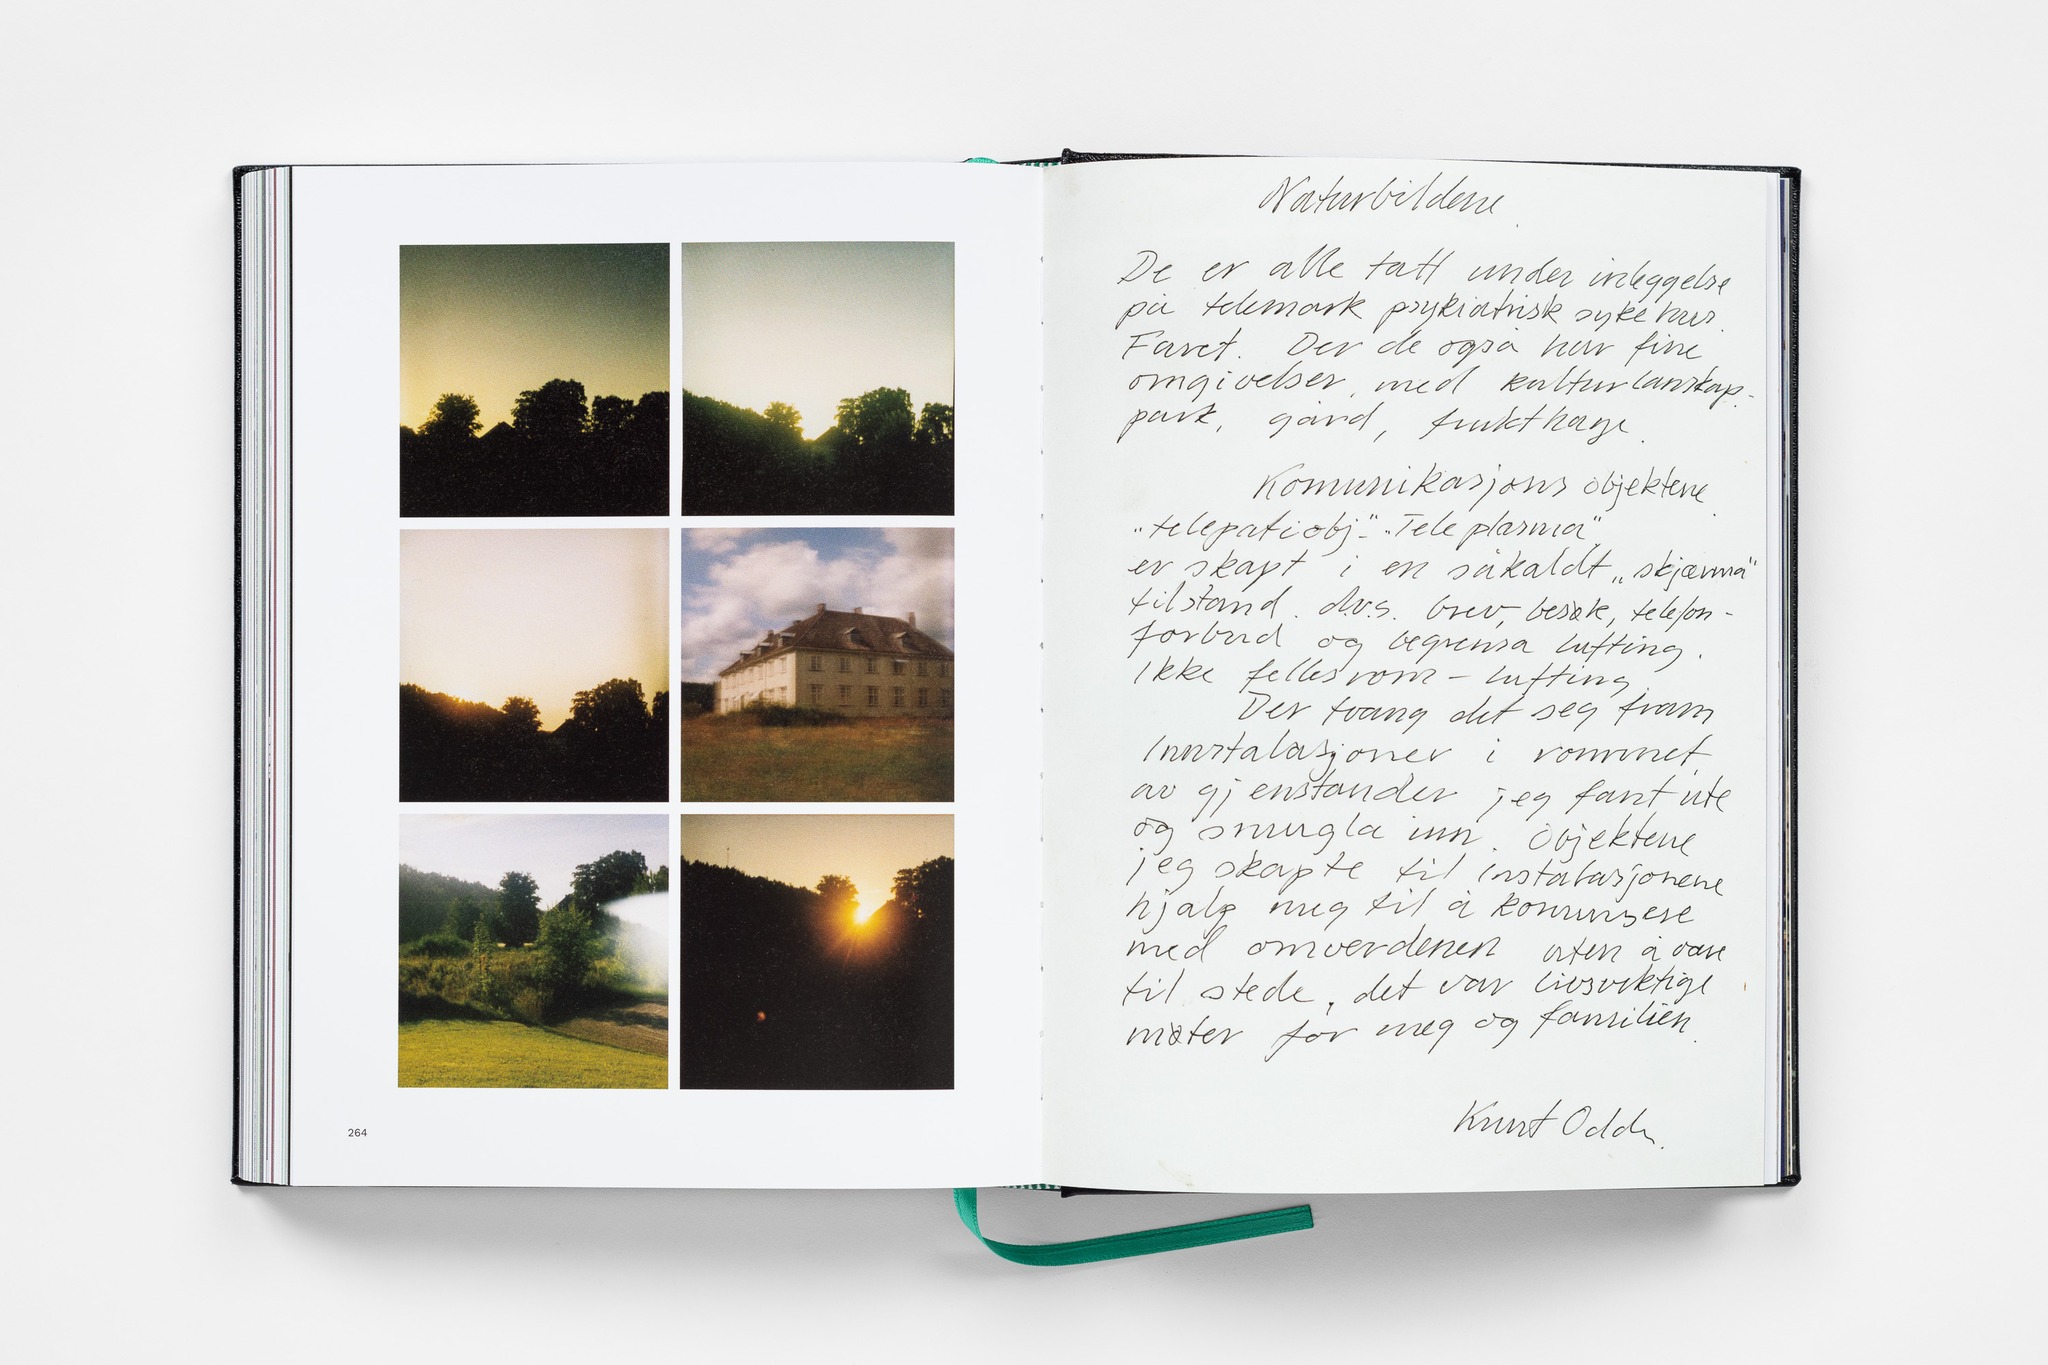 264
Naturbildene.
De er alle tatt under inleggelse
på telemark psykiatrisk sykehus.
Faret. Der de også har fine
omgivelser, med kulturlanskap-
park, gård, frukthage.
Komunikasjons objektene.
"telepatiobj"- "Tele plasma"
er skapt i en såkaldt "skjærma"
tilstand. d.v.s. brev, besøk, telefon-
forbud og begrensa lufting.
Ikke fellesrom - lufting.
Der tvang det seg fram
Innstalasjoner i rommet.
av gjenstander jeg fant ute
og smugla inn. Objektene
jeg skapte til instalasjonene
hjalp meg til å komunisere
med omverdenen uten å være
til stede, det var livsviktige
møter for meg og familien.
Kurt Oddn.